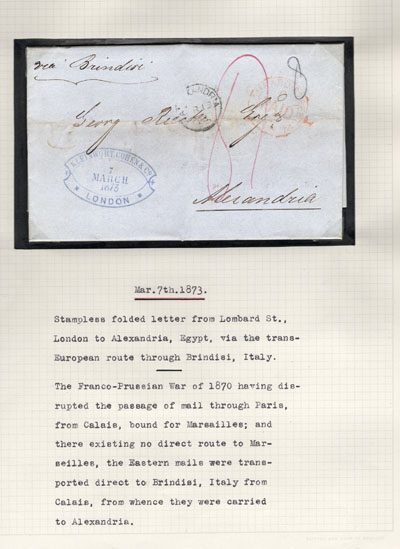 via Brindisi
8
Georg Esqre
KLEINWORT, COHEN & Co
7
MARCH
1873
LONDON
Alexandria
Mar.7th.1873.
Stampless folded letter from Lombard St.,
London to Alexandria, Egypt, via the trans-
European route through Brindisi, Italy.
The Franco-Prussian War of 1870 having dis-
rupted the passage of mail through Paris,
from Calais, bound for Marsailles; and
there existing no direct route to Mar-
seilles, the Eastern mails were trans-
ported direct to Brindisi, Italy from
Calais, from whence they were carried
to Alexandria.